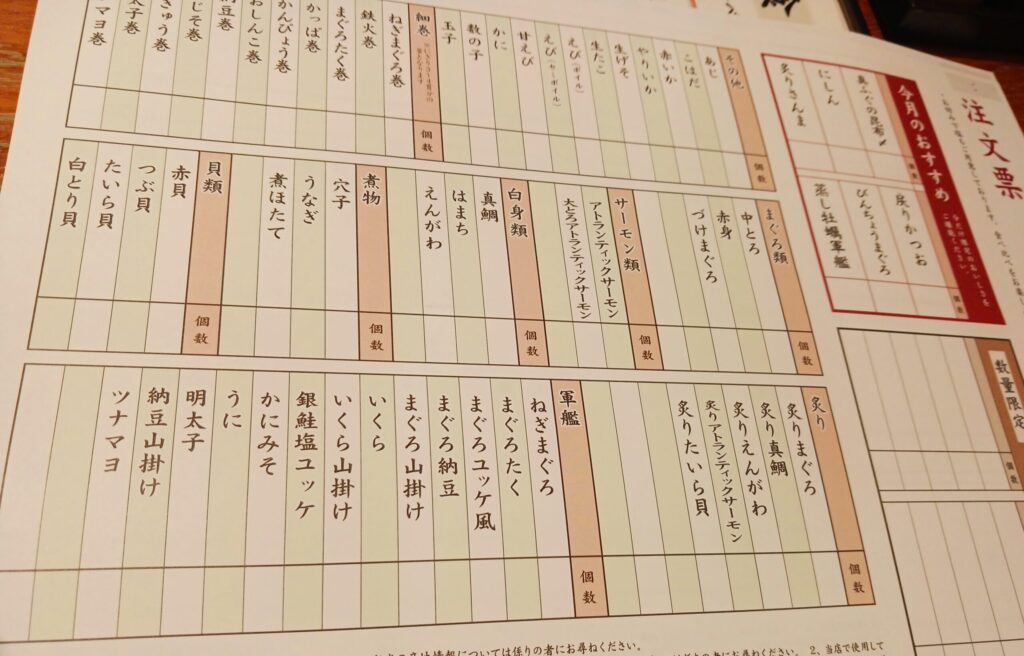 注文票
今月のおすすめ
今だけ限定のおいしさを
ご堪能ください。
個数
戻りかつお
びんちょうまぐろ
蒸し牡蠣軍艦
個数
真ふぐの昆布〆
にしん
炙りさんま
数量限定
個数
その他
個数
あじ
こはだ
赤いか
やりいか
生げそ
生たこ
えび(ボイル)
えび(カーボイル)
甘えび
かに
数の子
玉子
細巻
個数
ねぎまぐろ巻
鉄火巻
まぐろたく巻
かっぱ巻
かんぴょう巻
おしんこ巻
納豆巻
じそ巻
きゅう巻
太子巻
マヨ巻
まぐろ類
個数
中とろ
赤身
づけまぐろ
サーモン類
個数
アトランティックサーモン
大とろアトランティックサーモン
白身類
個数
真鯛
はまち
えんがわ
煮物
個数
穴子
うなぎ
煮ほたて
貝類
個数
赤貝
つぶ貝
たいら貝
白とり貝
炙り
個数
炙りまぐろ
炙り真鯛
炙りえんがわ
炙りアトランティックサーモン
炙りたいら貝
軍艦
個数
ねぎまぐろ
まぐろたく
まぐろユッケ風
まぐろ納豆
まぐろ山掛け
いくら
いくら山掛け
銀鮭塩ユッケ
かにみそ
うに
明太子
納豆山掛け
ツナマヨ
については係りの者にお尋ねください。
係りの者にお尋ねください。 2、当店で使用して